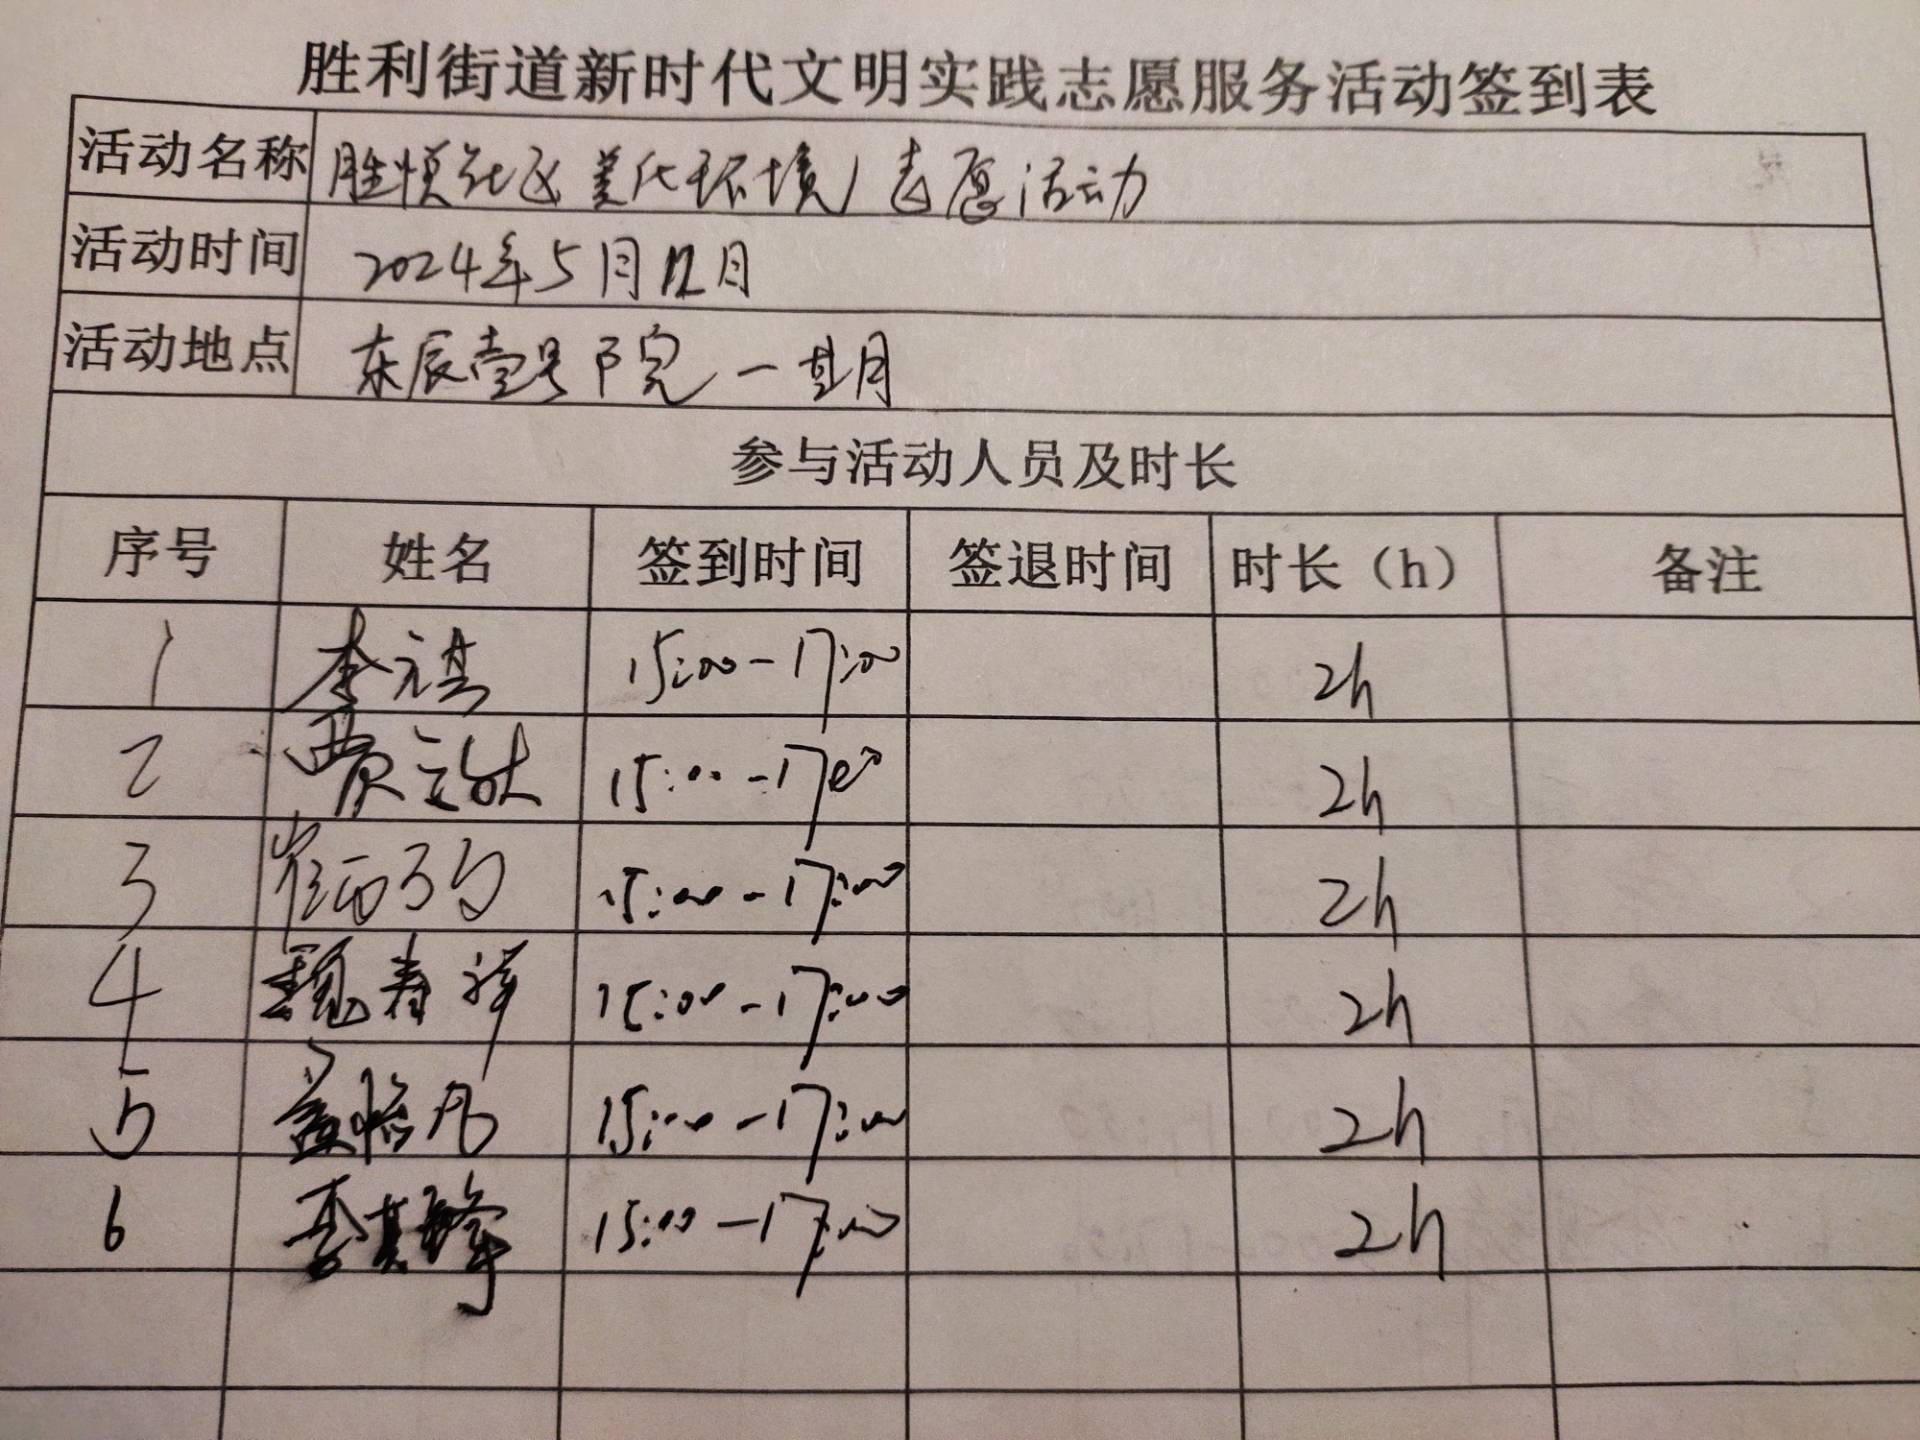 胜利街道新时代文明实践志愿服务活动签到表
活动名称 胜悦社区美化环境志愿活动
活动时间 2024年5月12日
活动地点 东辰壹号院一期
参与活动人员及时长
序号 姓名 签到时间 签退时间 时长（h） 备注
1 李元祺 15:00-17:00 2h
2 贾 15:00-17:00 2h
3 崔 15:00-17:00 2h
4 魏春祥 15:00-17:00 2h
5 怡凡 15:00-17:00 2h
6 15:00-17:00 2h